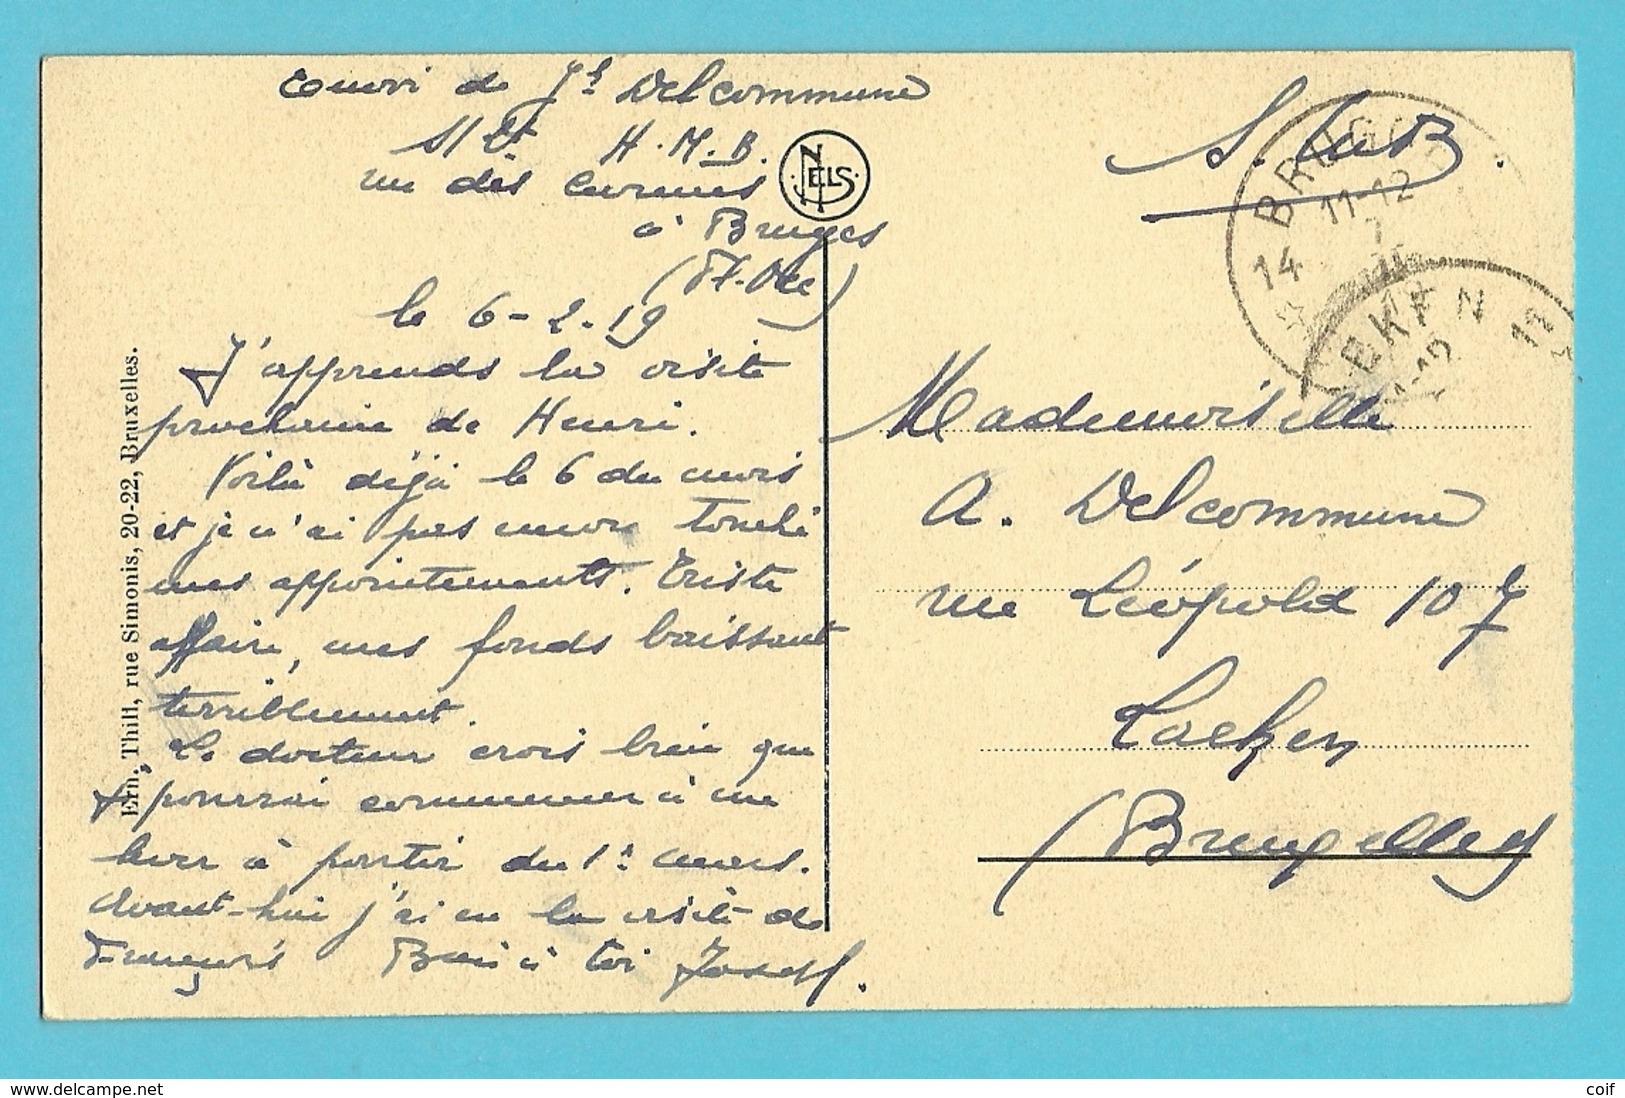 Envoi de Jh Delcommune
S/Lt. H.M.B.
rue des Carmes
à Bruges
(Fl. Occ)
le 6-2-19
J'apprends la visite
prochaine de Henri.
Voilà déjà le 6 du mois
et je n'ai pas encore touché
mes appointements. Triste
affaire, mes fonds baissant
terriblement.
Le docteur crois bien que
je pourrai commencer à me
lever à partir du 1r mars.
Avant-hier j'ai eu la visite de
François Bien à toi Joseph.
NELS
Ern. Thill, rue Simonis, 20-22, Bruxelles.
S.M.B.
BRUG
11-12
7
14
EKEN
11-12
Mademoiselle
A. Delcommune
rue Léopold 107
Laeken
(Bruxelles)
delcampe.net
coif